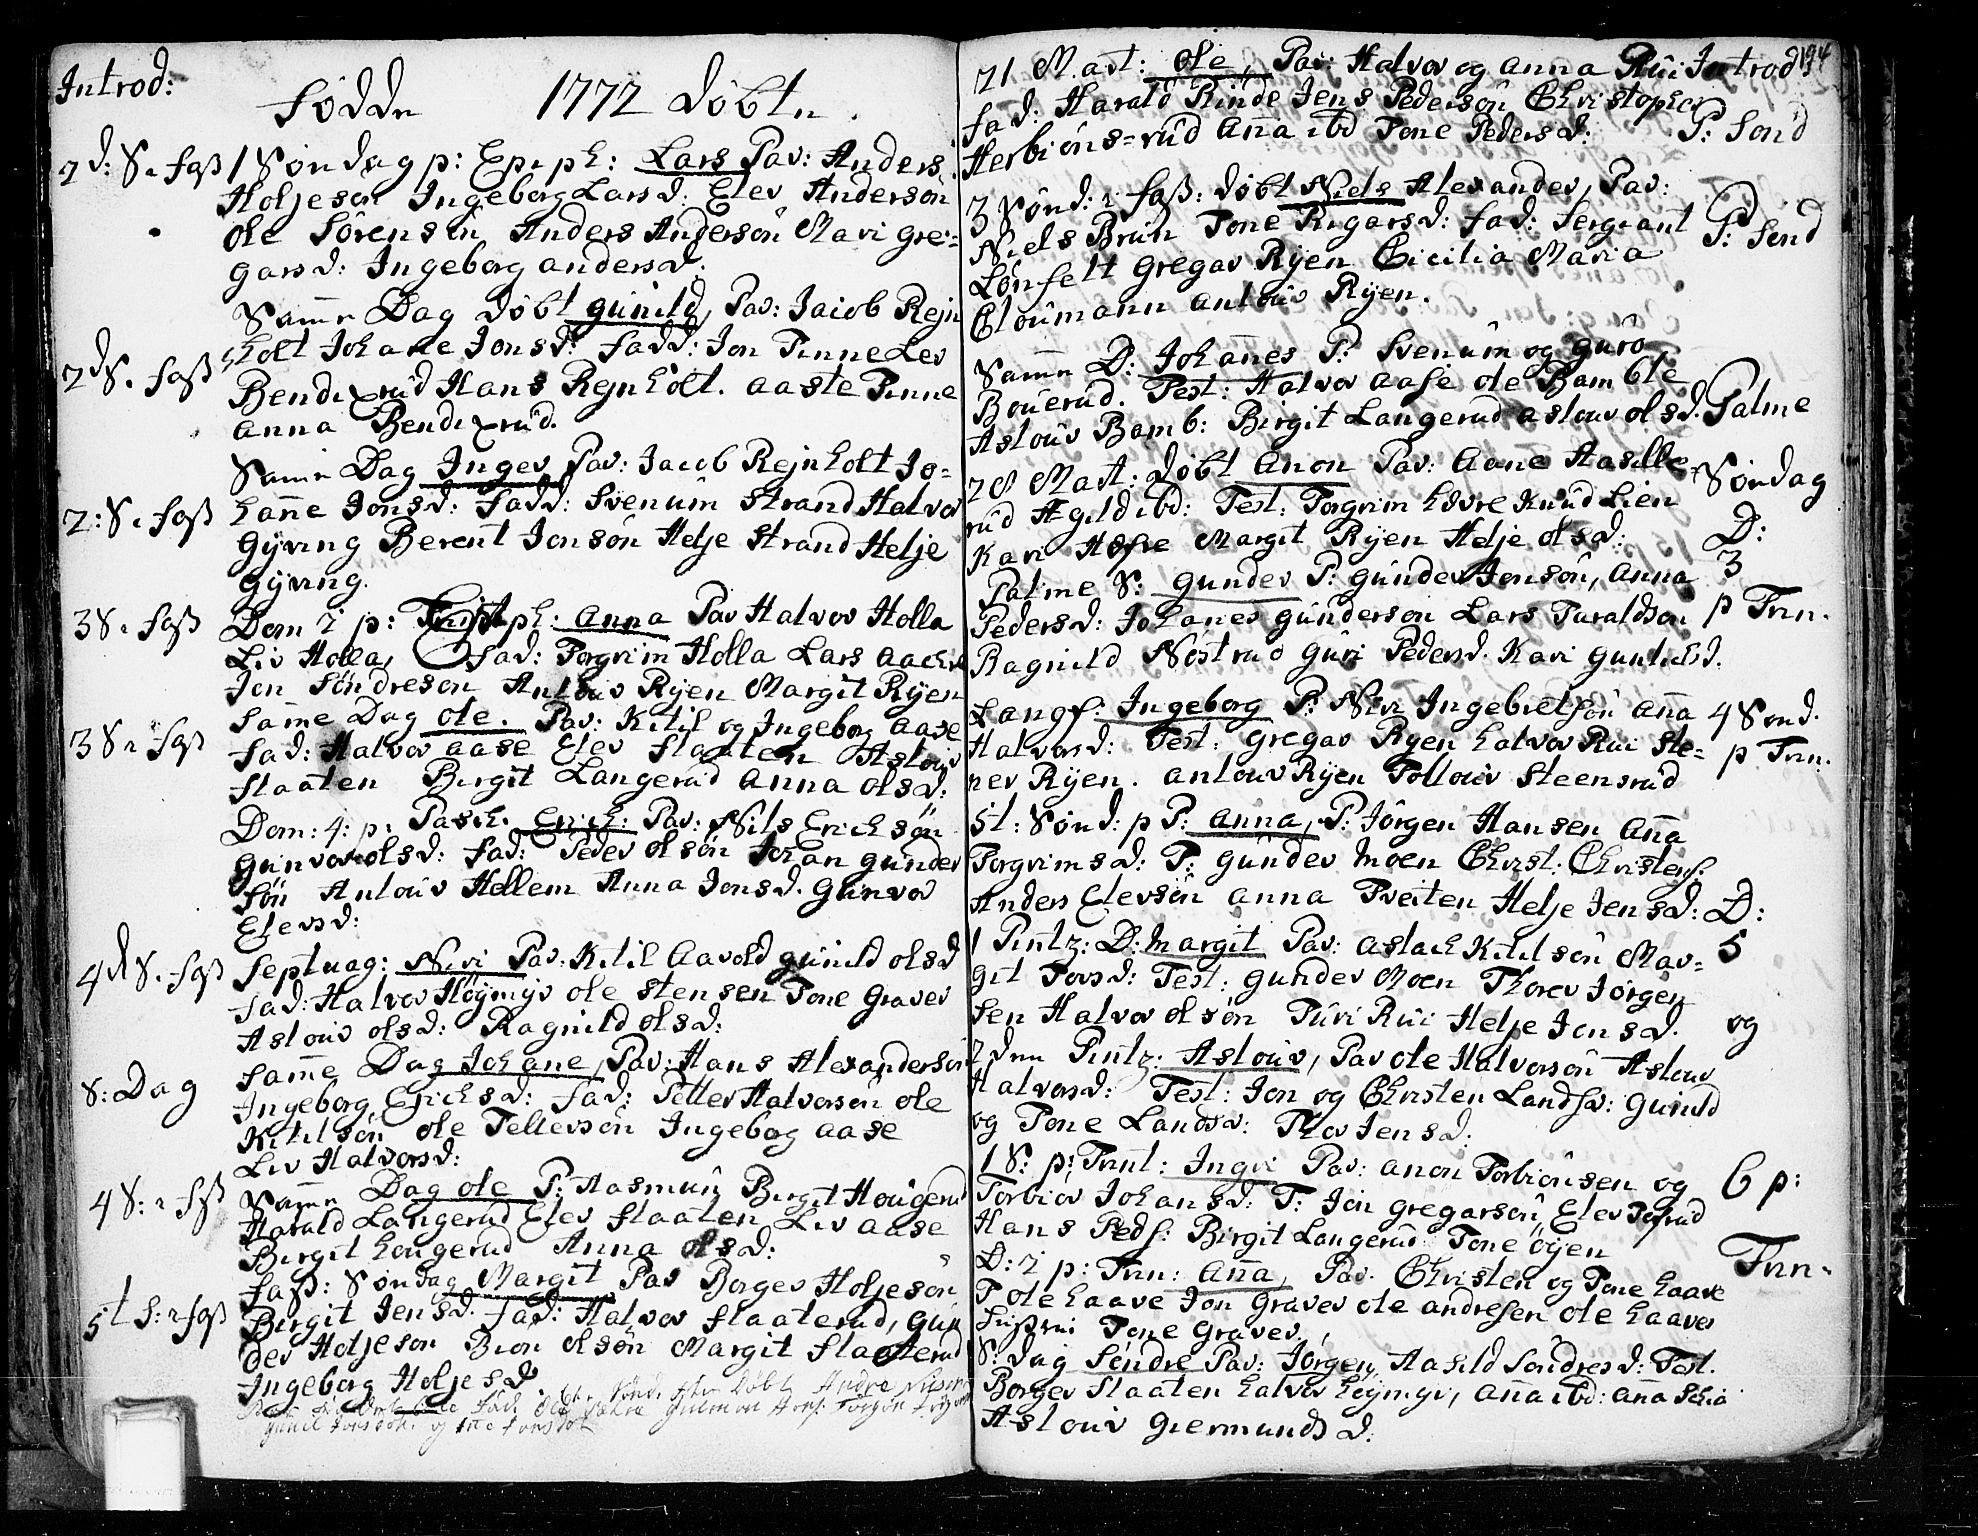 Introd:
Fødde 1772 Døbte.
2d: S. i Fast
1 Søndag p: Epiph: Lars Par: Anders
Holjeson Ingeborg Larsd: Elev Anderson
Ole Sørensen Anders Andersøn Mari Gre-
garsd: Ingeborg Andersd.
2d S. Fast
Samme Dag Døbt Gunild, Par: Jacob Rejn
holt Johane Jonsd: Fadd: Jon Tinne Lev
Bendixrud Hans Rejnholt. Aaste Tinne
Anna Bendixrud.
2: S. Fast
Samme Dag Inger Par: Jacob Rejnholt Jo-
hanne Jonsd: Fadd: Svenum Strand Halvor
Gyving Berent Jonsøn Helje Strand Helje
Gyving.
3 S. Fast
Dom 2 p: Epiph: Anna Par Halvor Holla
Liv Holla, Fad: Torgrim Holla Lars
Jon Søndreson Antouv Ryen Margit Ryen
3 S. i Fast
Samme Dag Ole. Par: Kitil og Ingeborg Aase
Fad: Halvor Aase Elev Flaaten Aslouv
Flaaten Birgit Langerud Anna Olsd:
Dom: 4: p: Pasch. Erich: Par: Nils Erichsøn
Gunvor Olsd: Fad: Peder Olsøn Johan Gunder
søn Antouv Hellem Anna Jonsd. Gunvor
Elevsd:
4d S. Fast
Septuag: Niri Par: Kitil Aavold Gunild Olsd
Fad: Halvor Høymyr Ole Stensen Tone Graver
Aslouv Olsd: Ragnild Olsd:
S: Dag
Samme Dag Johane, Par: Hans Alexanderson
Ingeborg Erichsd: Fad: Petter Halvorsøn Ole
Kitilsøn Ole Tellevsøn Ingeborg Aase
Liv Halvorsd:
4 S: i Fast
Samme Dag Ole P: Rasmus Birgit Hougerud
Harald Langerud Elev Flaaten Liv Aase
Birgit Hougerud Anna Olsd:
5t S: i Fast
Fast: Søndag Margit Par Børger Holjesøn
Birgit Jensd. Fad: Halvor Flaaterud, Gun
der Holjeson Bion Olsøn Margit Flaaterud
Ingeborg Holjesd.
194
21 Mart: Ole, Par: Halvor og Anna Rui Introd:
Fad: Harald Rinde Jens Pedersøn Christopher
Herbiøns-rud Anna ibd Tone Pedersd: P: Sønd
3 Sønd: i Fast: Døbt Niels Alexander, Par:
Niels Brun Tone Regarsd: Fad: Sergeant P: Sønd
Lønfelt Gregar Ryen Cicilia Maria
Cloumann Antouv Ryen.
Samme D: Johannes P: Svenum og Guro
Bouerud. Test: Halvor Aase Ole Bamble
Aslouv Bamb: Birgit Langerud Aslouv Olsd. Palme
28 Mart: Døbt Anon Par: Aane Haselle- Søndag
rud Aagild ibd: Test: Torgrim Knud Lien
Kari Margit Ryen Helje Olsd: D:
Palme S: Gunder P: Gunder Jensøn, Anna 3
Pedersd: Johanes Gunderson Lars Taraldson p Trin.
Ragnild Nøstrud Guri Pedersd. Kari Gunlichsd.
Langf: Ingeborg P: Niri Ingebretsøn Anna 4 Sønd.
Halvorsd: Test: Gregar Ryen Halvor Rui Ste-
ner Ryen. Antouv Ryen Tollouv Steensrud p Trin:
5t: Sønd: p P: Anna, P: Jørgen Hansen Anna
Torgrimsd: T: Gunder Moen Christ: Christens:
Anders Elevsøn Anna Tveiten Helje Jensd: D:
1 Pintz: D: Margit Par: Aslach Kitilsøn Mar- 5
git Torsd: Test: Gunder Moen Thorer Jørgen
sen Halvor Olsøn Turi Rui Helje Jensd. og
2den Pintz: Aslouv, Par Ole Halvorsøn Aslouv
Halvorsd: Test: Jon og Christen Landsv: Gunild
og Tone Landsv: Thor Jensd:
1 S: p: Trint: Par: Anon Torbiønsen og 6 p:
Torbiør Johansd: T: Jon Gregarsøn, Elev
Hans Peds: Birgit Langerud Tone Øyen
D: 2 p: Trin: Anna, Par: Christen og Tone Haave Trin.
T Ole Haave Jon Graver Ole Andresen Ole Haaver
Tone Graver.
S: Dag Søndre Par: Jørgen, Aasild Søndresd: Test.
Børger Flaaten Halvor Høymyr, Anna ibd: Ana
Aslouv Giermundsd: